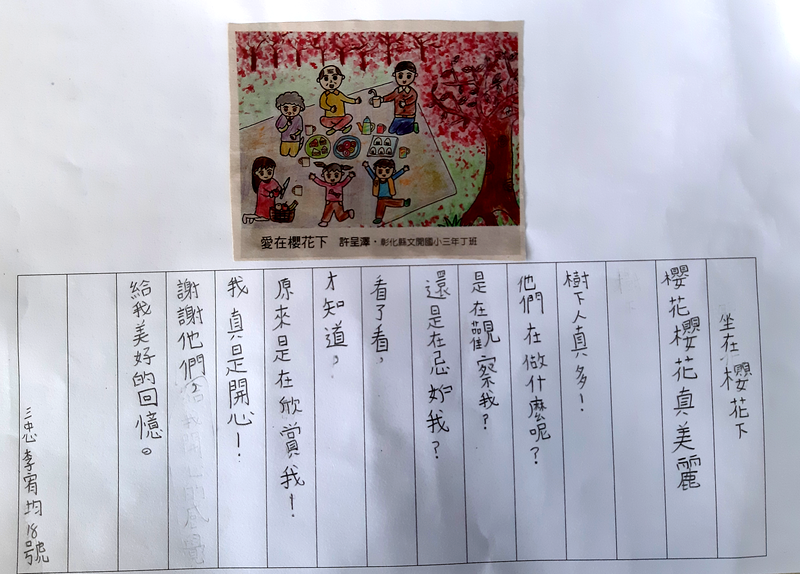 愛在櫻花下 許呈澤・彰化縣文開國小三年丁班
坐在櫻花下
櫻花櫻花真美麗
樹下人真多！
他們在做什麼呢？
是在觀察我？
還是在忌妒我？
看了看，
才知道，
原來是在欣賞我！
我真是開心！
謝謝他們。
給我美好的回憶。
三忠 李宥均 18號